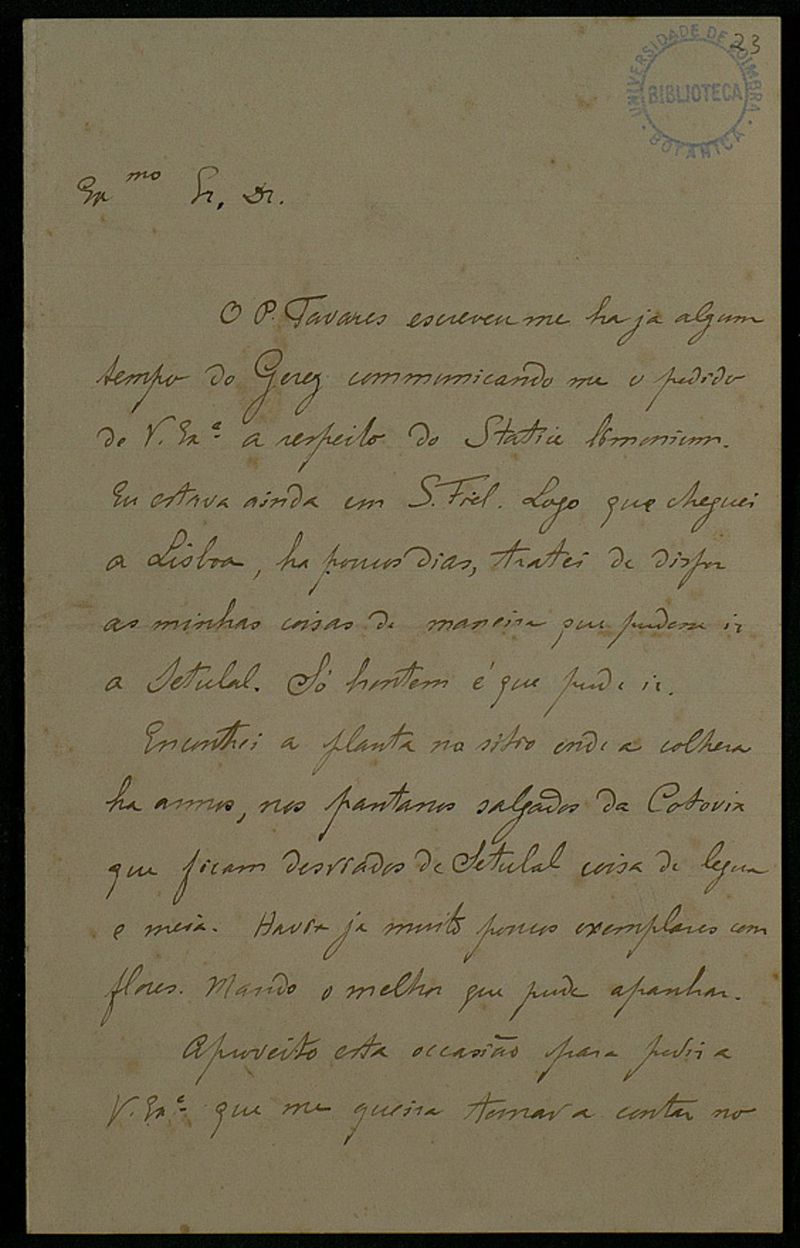 23
UNIVERSIDADE DE COIMBRA
BIBLIOTECA
BOTANICA
Ex.mo Sr. Dr.
O P. Tavares escreveu me ha ja algum
tempo do Gerez communicando me o pedido
de V. Exª a respeito do Statice limonium.
Eu estava ainda em S. Fiel. Logo que cheguei
a Lisboa, ha poucos dias, tratei de dispor
as minhas coisas de maneira que pudesse ir
a Setubal. Só hontem é que pude ir.
Encontrei a planta no sitio onde a colhera
ha annos, nos pantanos salgados da Cotovia
que ficam desviados de Setubal coisa de legua
e meia. Havia ja muito poucos exemplares com
flores. Mando o melhor que pude apanhar.
Aproveito esta occasião para pedir a
V. Exª que me queira tornar a contar no